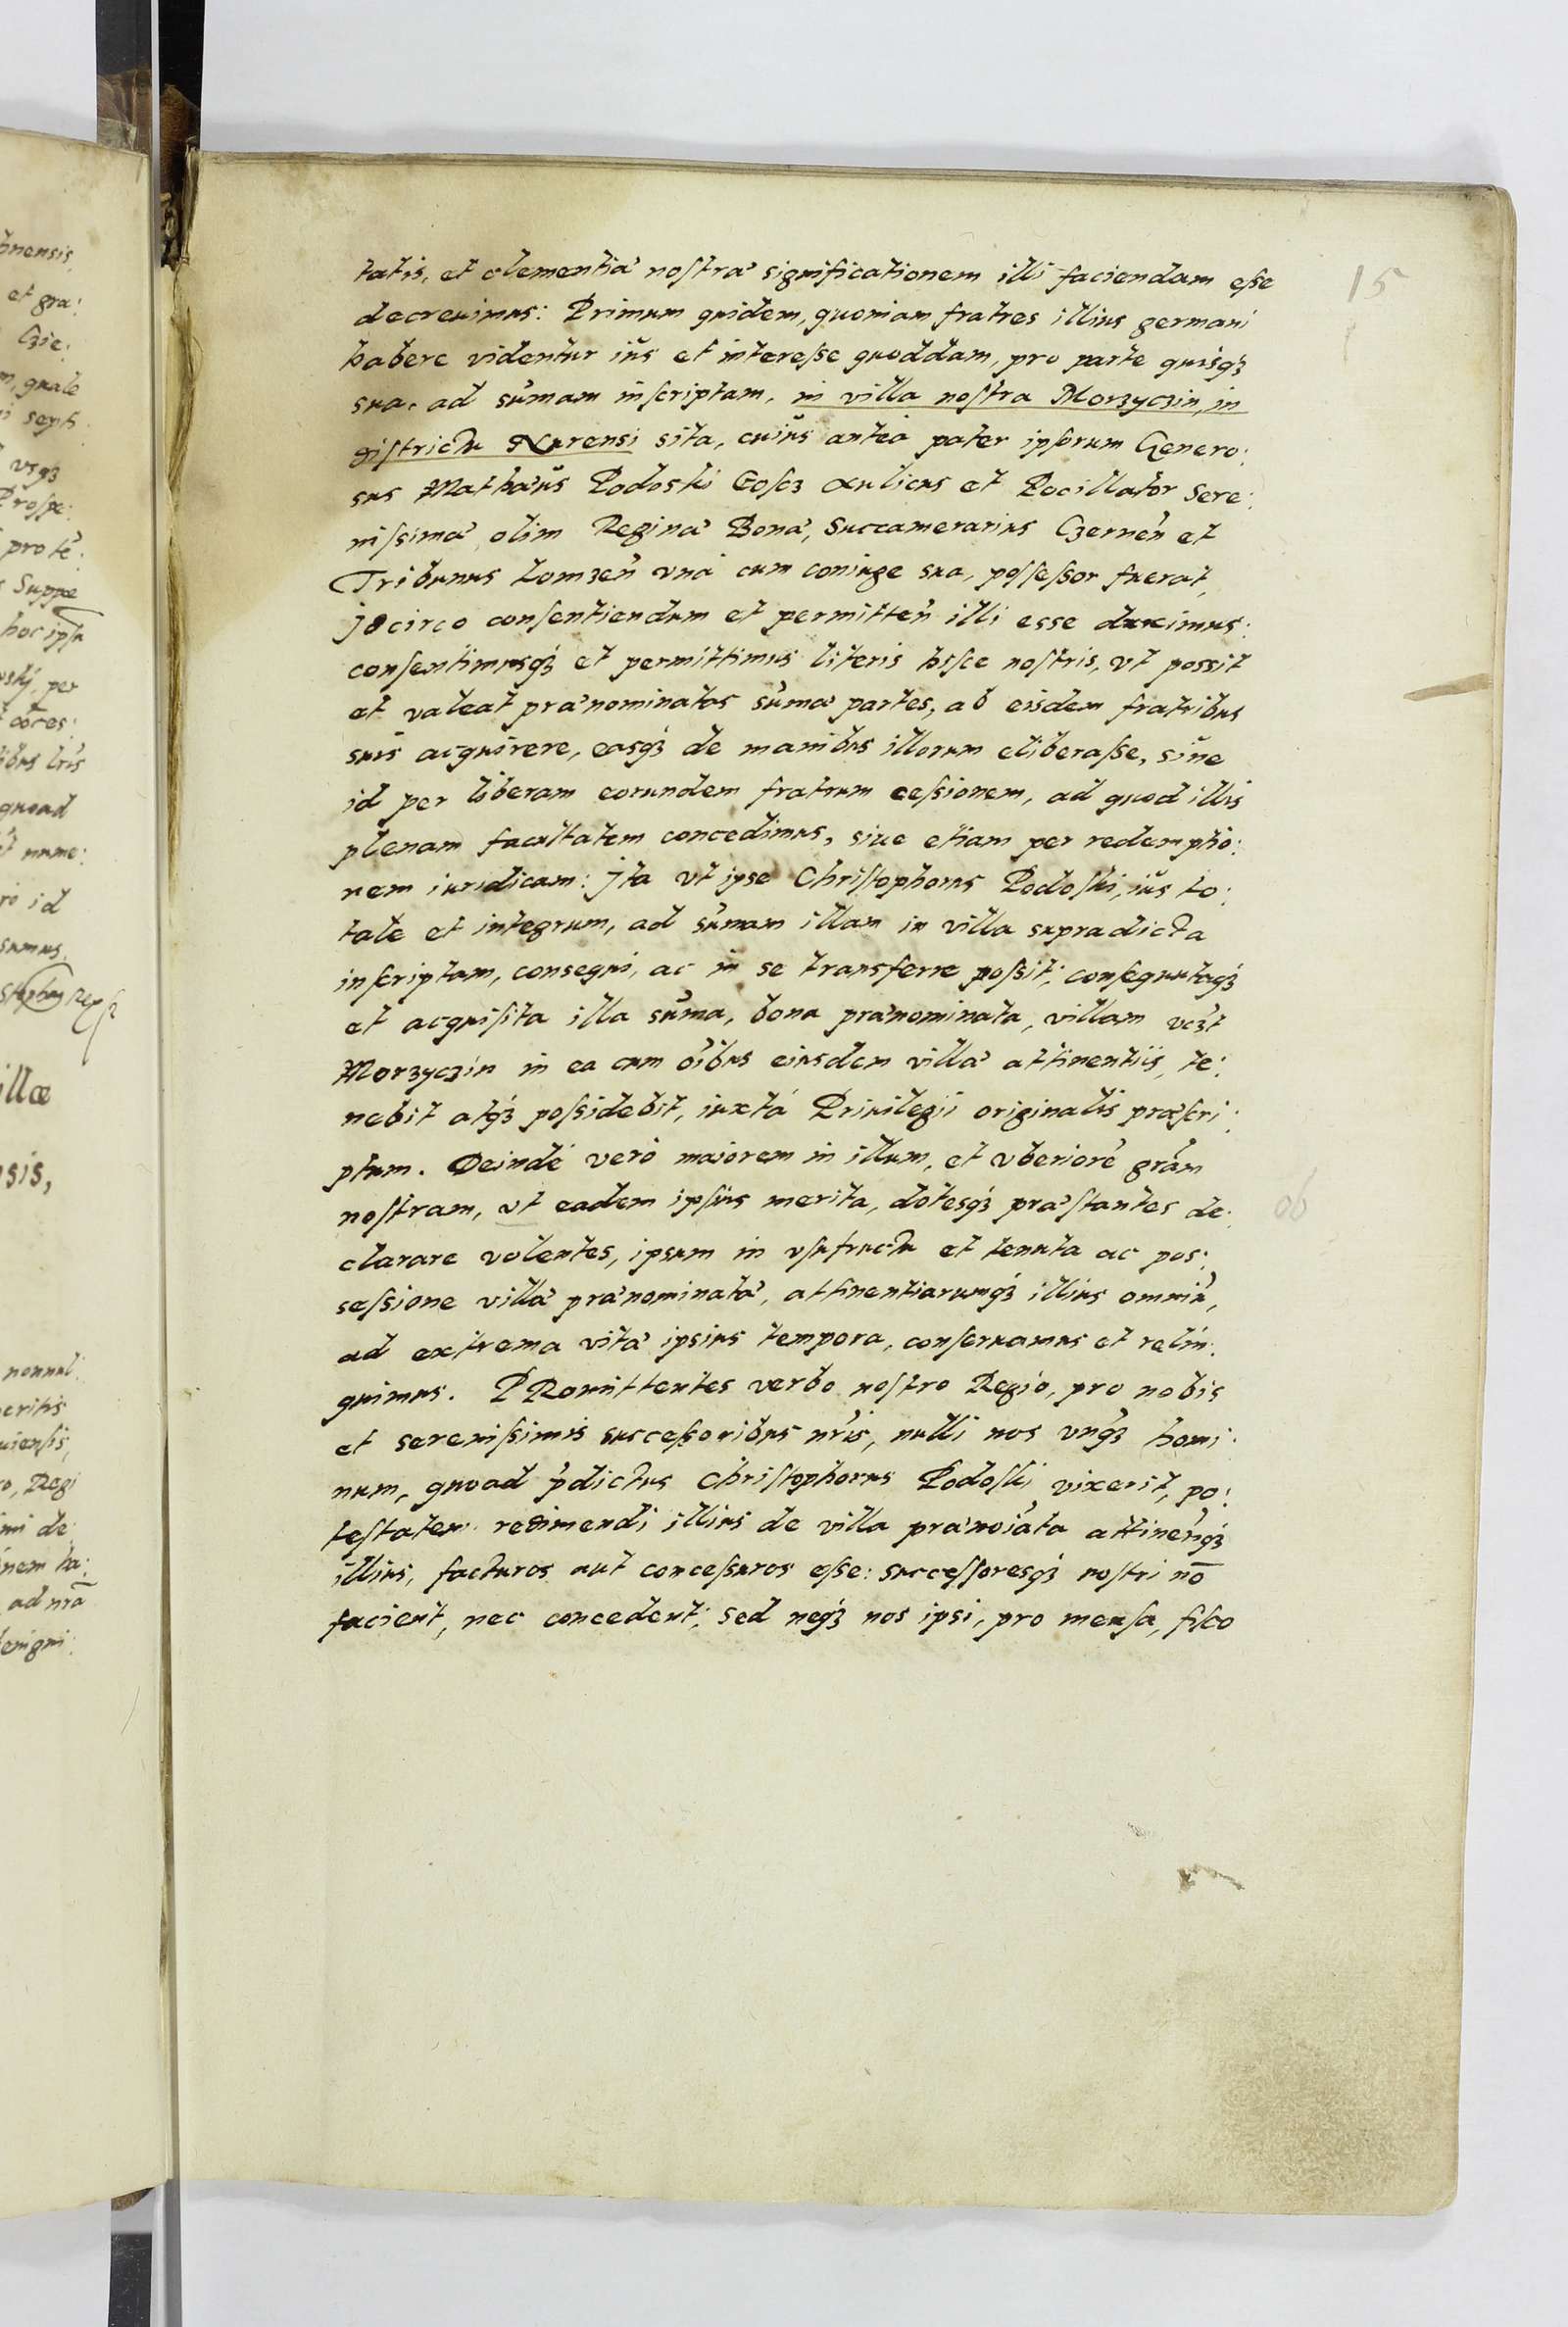 15
tatis, et clementiæ nostræ significationem illi faciendam esse
decreuimus: Primum quidem, quoniam fratres illius germani
habere videntur iús et interesse quoddam, pro parte quisq́ȝ
sua, ad súmam inscriptam, in villa nostra Morzyczin, in
districtu Nurensi sita, cuiús anteà pater ipsorum Genero:
sus Mathæús Podoski Gości Aulicus et Pocillator Sere:
nissimæ olim Reginæ Bonæ, Succamerarius Czernén et
Tribunus Lomzeń vnà cum coniuge sua, possessor fuerat,
jdcirco consentiendum et permitteń illi esse duximus:
consentimusq́ȝ et permittimus literis hisce nostris, vt possit
et valeat prænominatas súmæ partes, ab eisdem fratribus
suis acquirere, easq́ȝ de manibus illorum eliberasse, siúe
id per liberam eorundem fratrum cessionem, ad quod illis
plenam facultatem concedimus, siue etiam per redemptio:
nem iuridicam: jta vt ipse Christophorus Podoski, iús to:
tale et integrum, ad súmam illam in villa supradicta
inscriptam, consequi, ac in se transferre possit; consequutaq́ȝ
et acquisita illa súma, bona prænominata, villam vcȝt
Morzyczin in ea cum oíbus eiusdem villæ attinentiis, te:
nebit atq́ȝ possidebit, iuxtà Priuilegii originalis præscri:
ptum. Deindè verò maiorem in illum, et vberioré grám
nostram, vt eadem ipsiús merita, dotesq́ȝ præstantes de: ob
clarare volentes, ipsum in vsufructu et tenuta ac pos:
sessione villæ prænominatæ, attinentiarumq́ȝ illius omniú,
ad extrema vitæ ipsius tempora, conseruamus et relin:
quimus. PRomittentes verbo nostro Regio, pro nobis
et serenissimis successoribus nŕis, nulli nos vnq́ȝ homi:
num, quoad ṕdictus Christophorus Podoski vixerit, po:
testatem redimendi illius de villa prænoíata attineńq́ȝ
illius, facturos aut concessuros esse: successoresq́ȝ nostri nō
facient, nec concedent; sed neq́ȝ nos ipsi, pro mensa, fisco